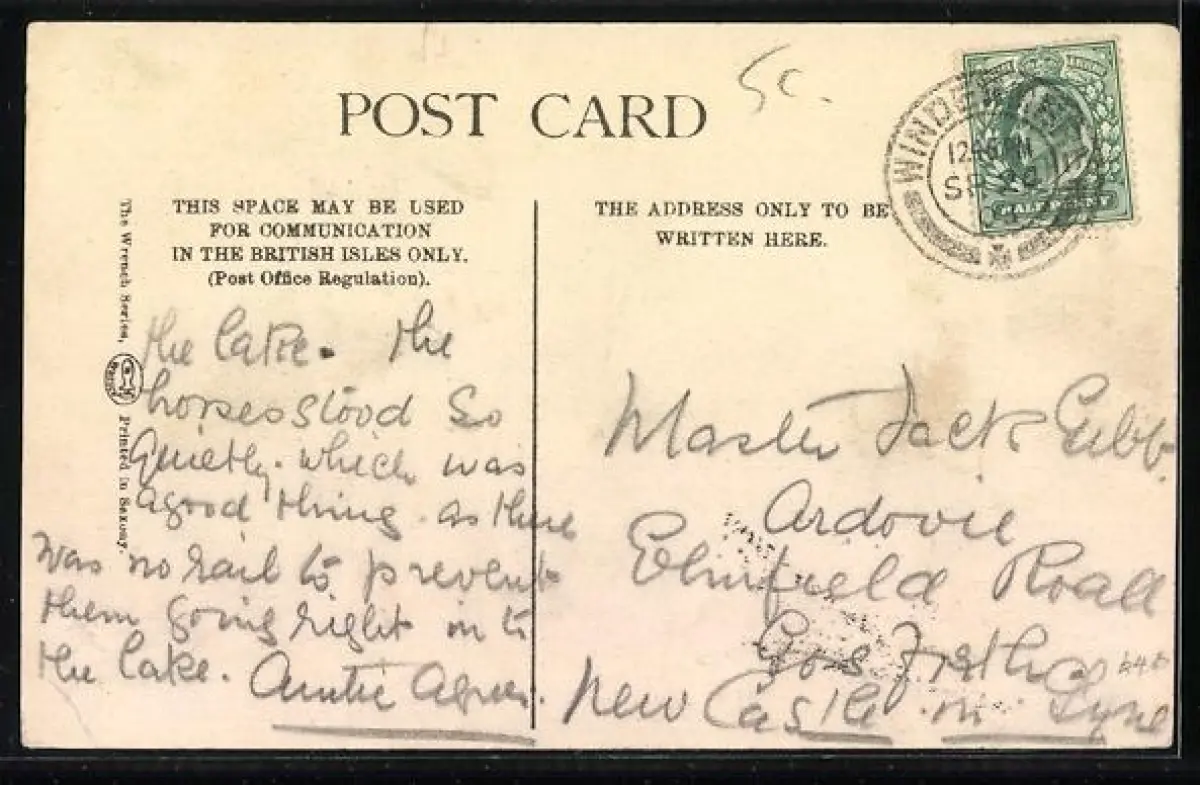 POST CARD
5c.
THIS SPACE MAY BE USED
FOR COMMUNICATION
IN THE BRITISH ISLES ONLY.
(Post Office Regulation).
THE ADDRESS ONLY TO BE
WRITTEN HERE.
The Wrench Series,
Printed in Saxony
the lake. the
horses stood so
quietly. which was
a good thing as there
was no rail to prevent
them going right in to
the lake. Auntie
Master Jack Gibb
Ardovie
Elmfield Road
Gosforth
New Castle on Tyne
HALFPENNY